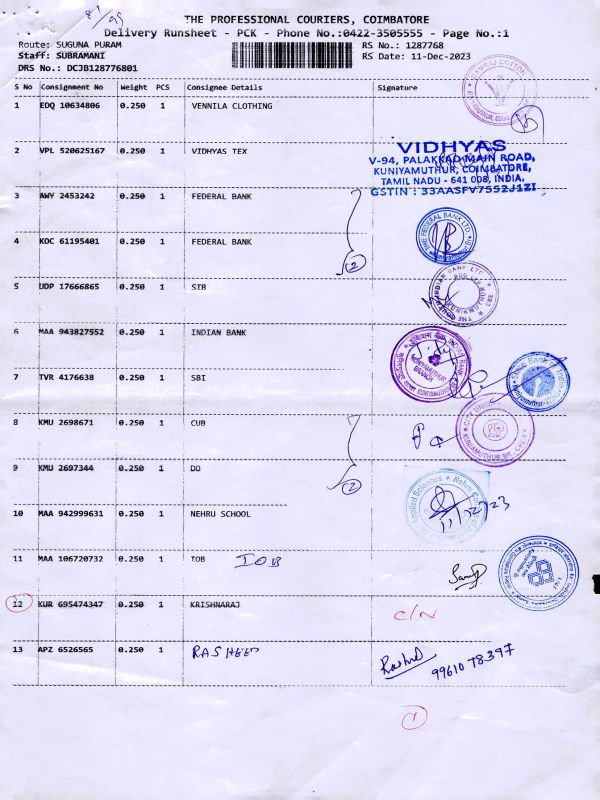 THE PROFESSIONAL COURIERS, COIMBATORE
Delivery Runsheet - PCK - Phone No.:0422-3505555 - Page No.:1
Route: SUGUNA PURAM RS No.: 1287768
Staff: SUBRAMANI RS Date: 11-Dec-2023
DRS No.: DCJB128776801
S No Consignment No Weight PCS Consignee Details Signature
1 EDQ 10634806 0.250 1 VENNILA CLOTHING
2 VPL 520625167 0.250 1 VIDHYAS TEX
VIDHYAS
V-94, PALAKKAD MAIN ROAD,
KUNIYAMUTHUR, COIMBATORE,
TAMIL NADU - 641 008, INDIA.
GSTIN : 33AASFV7552J1ZI
3 AWY 2453242 0.250 1 FEDERAL BANK
THE FEDERAL BANK LTD.
4 KOC 61195401 0.250 1 FEDERAL BANK
2
5 UDP 17666865 0.250 1 SIB
6 MAA 943827552 0.250 1 INDIAN BANK
KUNIYAMUTHUR
BRANCH
7 TVR 4176638 0.250 1 SBI
State Bank of India
8 KMU 2698671 0.250 1 CUB
9 KMU 2697344 0.250 1 DO
2
10 MAA 942999631 0.250 1 NEHRU SCHOOL
11/12/23
11 MAA 106720732 0.250 1 TOB IOB
12 KUR 695474347 0.250 1 KRISHNARAJ C/N
13 APZ 6526565 0.250 1 RASHEED
Rashid
9961078397
1